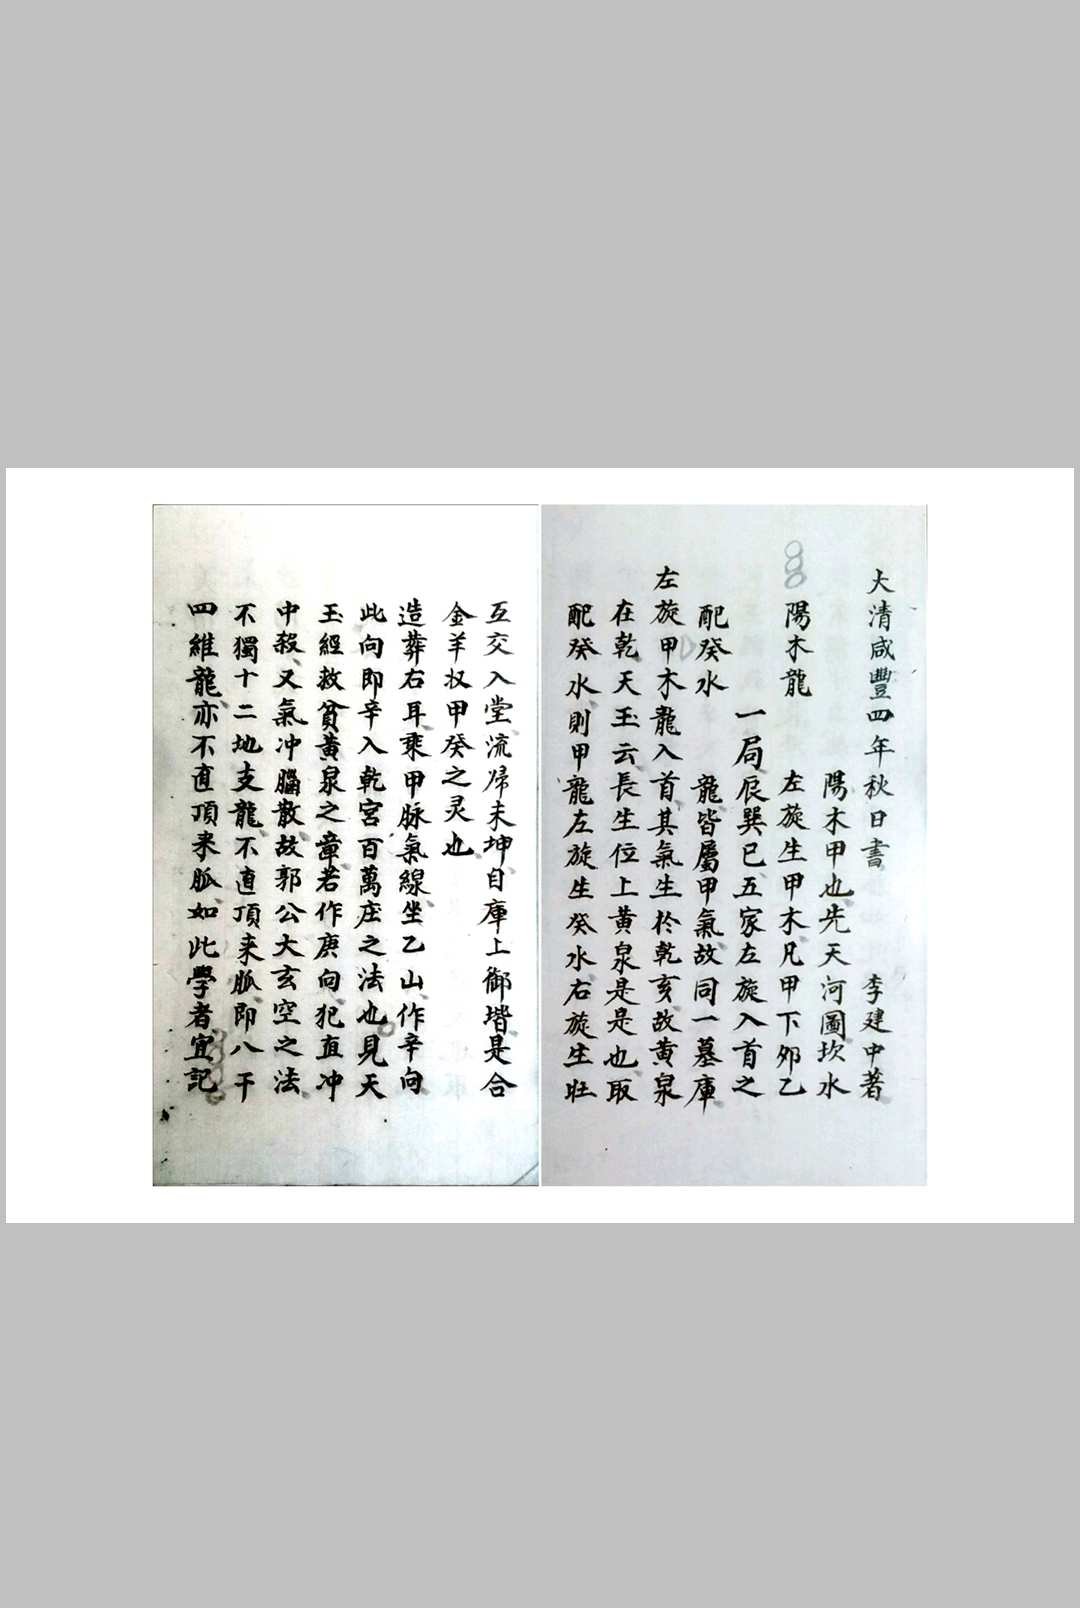 大清咸豐四年秋日書 李建中著
陽木甲也先天河圖坎水
陽木龍 左旋生甲木凡甲下夘乙
一局辰巽巳五家左旋入首之
配癸水 龍皆屬甲氣故同一墓庫
左旋甲木龍入首其氣生於乾亥故黄泉
在乾天玉云長生位上黄泉是是也取
配癸水則甲龍左旋生癸水右旋生旺
互交入堂流帰未坤自庫上御堦是合
金羊収甲癸之灵也
造葬右耳乘甲脉氣線坐乙山作辛向
此向即辛入乾宮百萬庄之法也見天
玉經救貧黄泉之章若作庚向犯直冲
中殺又氣冲腦散故郭公大玄空之法
不獨十二地支龍不直頂来脈即八干
四維龍亦不直頂来脈如此學者宜記